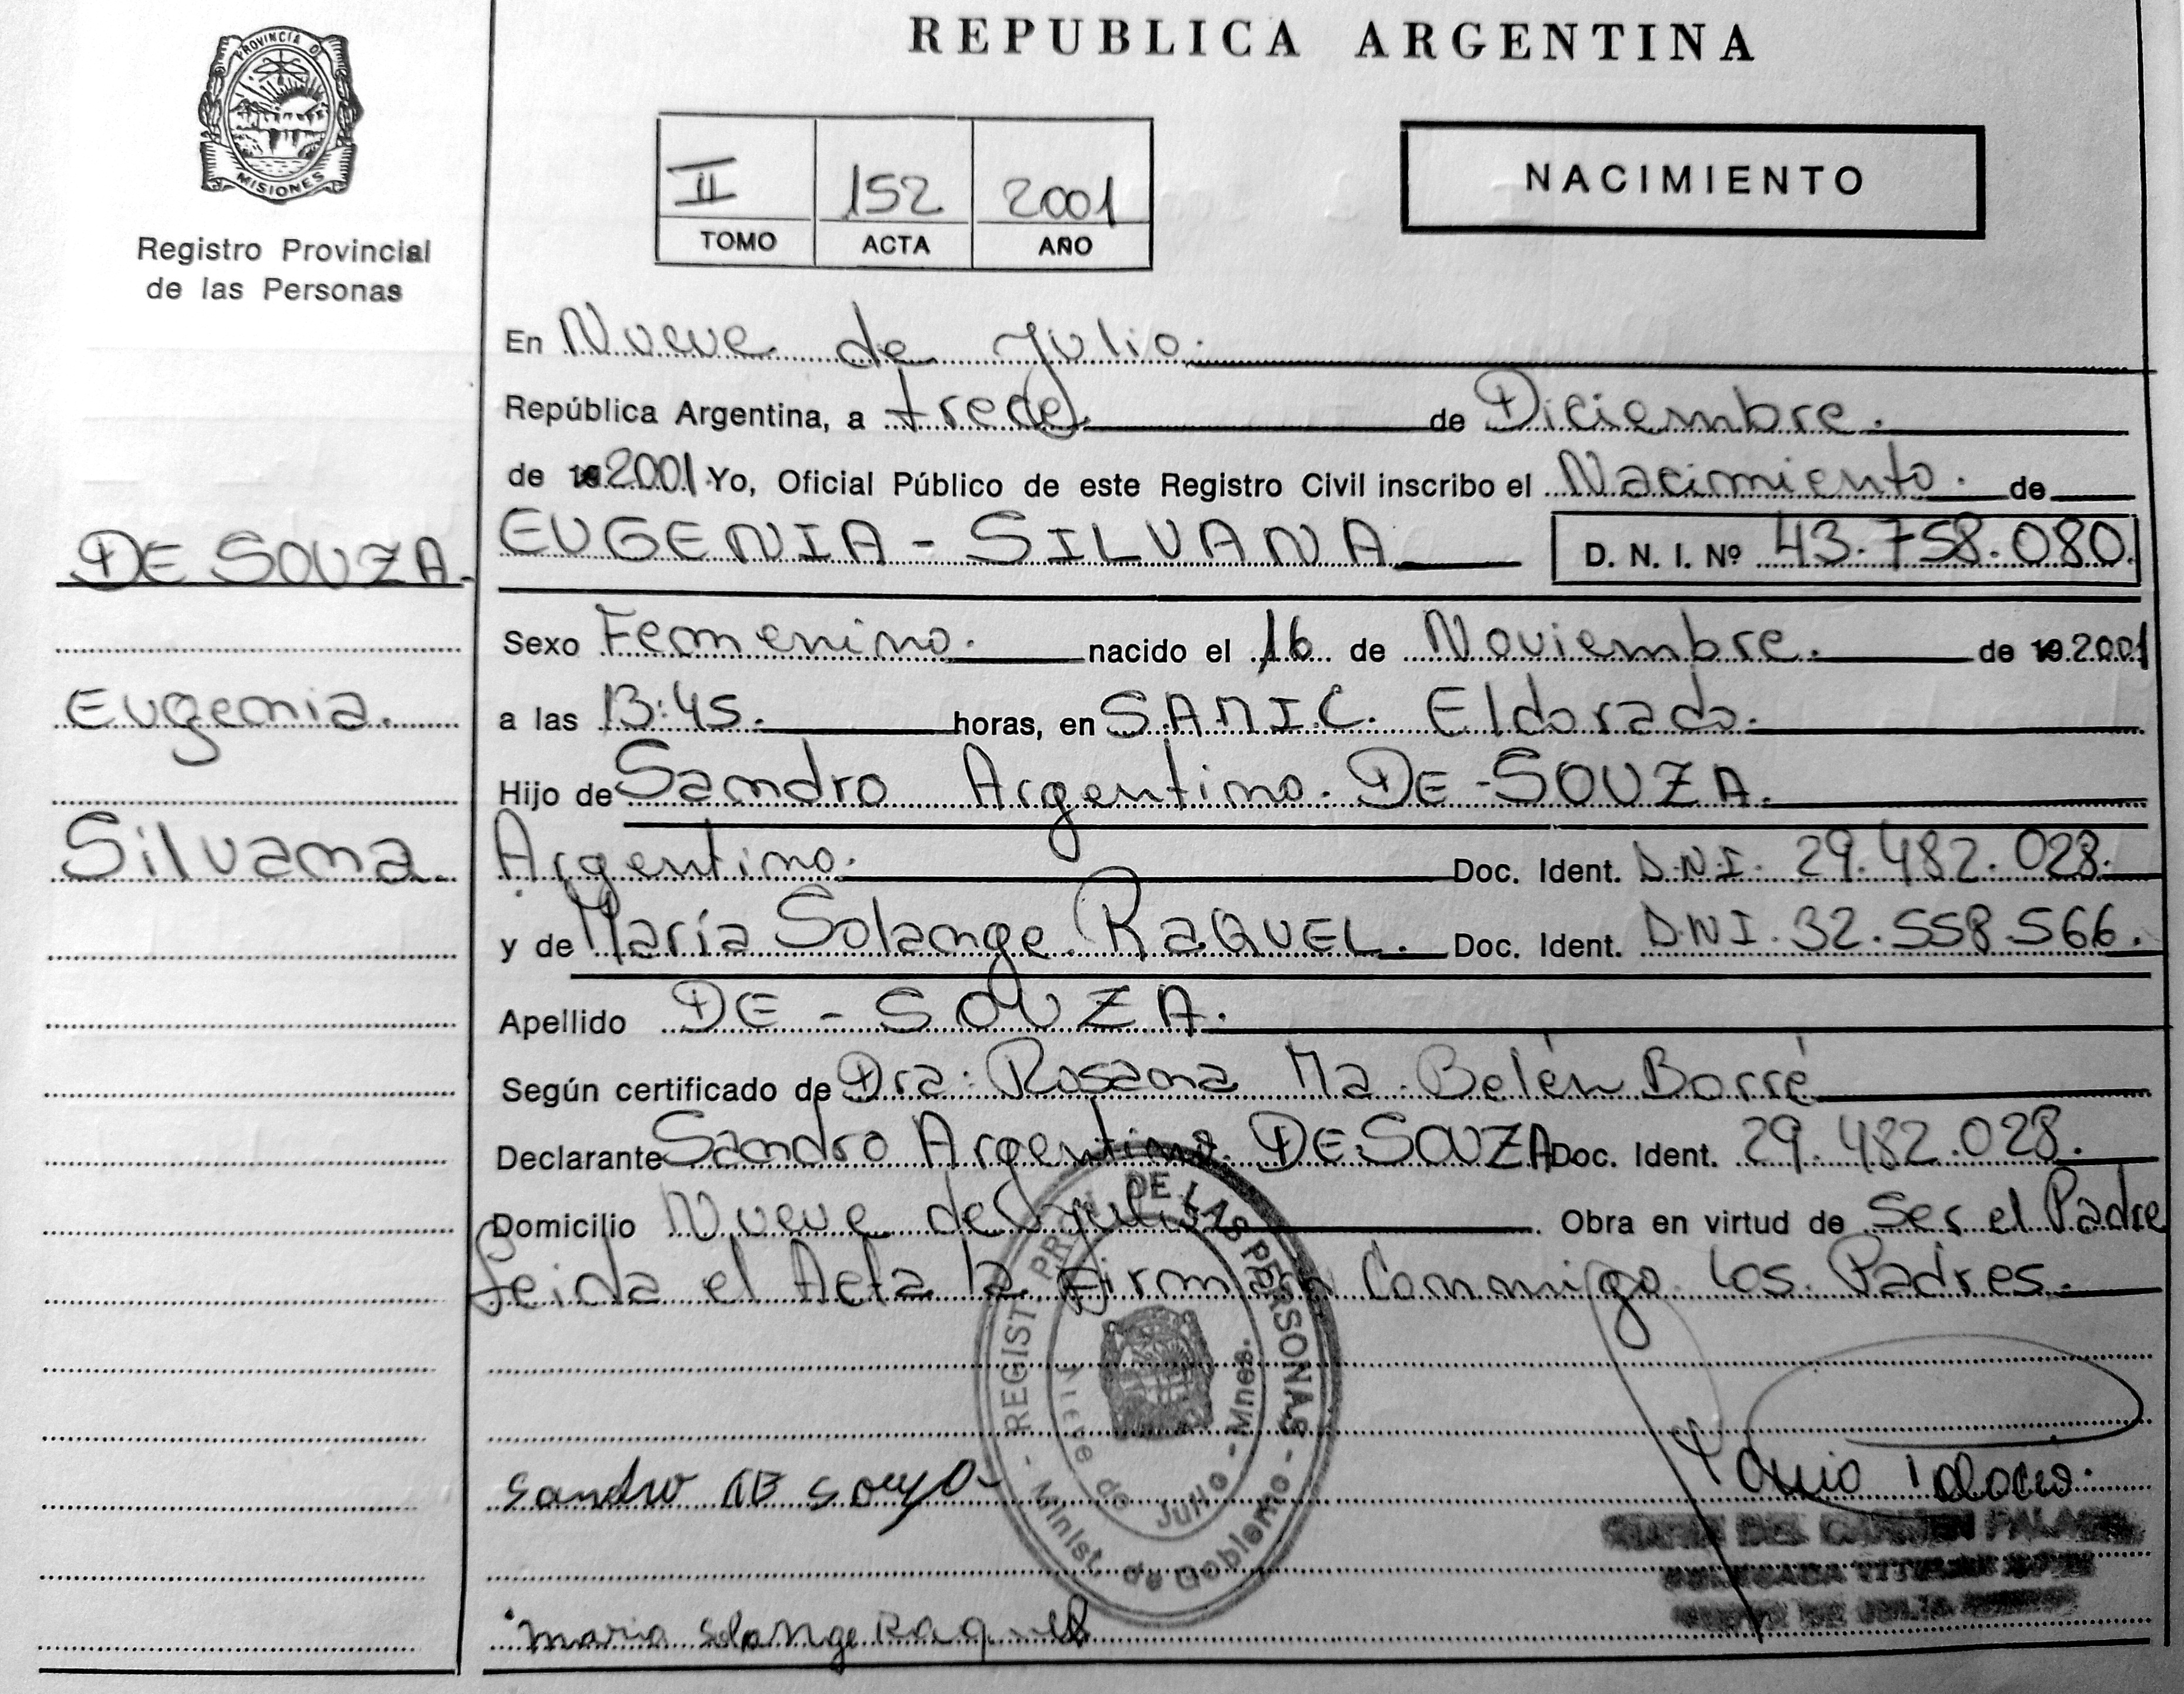 REPUBLICA ARGENTINA
PROVINCIA D
MISIONES
Registro Provincial
de las Personas
II 152 2001
TOMO ACTA AÑO
NACIMIENTO
En Nueve de Julio.
República Argentina, a trece de Diciembre.
de 19 2001 Yo, Oficial Público de este Registro Civil inscribo el Nacimiento. de
EUGENIA - SILVANA D. N. I. Nº 43.758.080.
DE SOUZA.
Eugenia.
Silvana.
Sexo Femenino. nacido el 16 de Noviembre. de 19 2001
a las 13:45. horas, en S.A.M.I.C. Eldorado.
Hijo de Sandro Argentino. DE - SOUZA.
Argentino. Doc. Ident. D.N.I. 29.482.028.
y de María Solange RAQUEL. Doc. Ident. D.N.I. 32.558.566.
Apellido DE - SOUZA.
Según certificado de Dra: Rosana Ma. Belén Borré
Declarante Sandro Argentino. DE SOUZA Doc. Ident. 29.482.028.
Domicilio Nueve de Julio. Obra en virtud de Ser el Padre
leida el Acta la Firman Conmigo los Padres.
REGIST PROV DE LAS PERSONAS
Nueve de Julio - Mnes.
- Minist. de Gobierno -
Sandro DE Souza
Maria Solange Raquel
MARIA DEL CARMEN